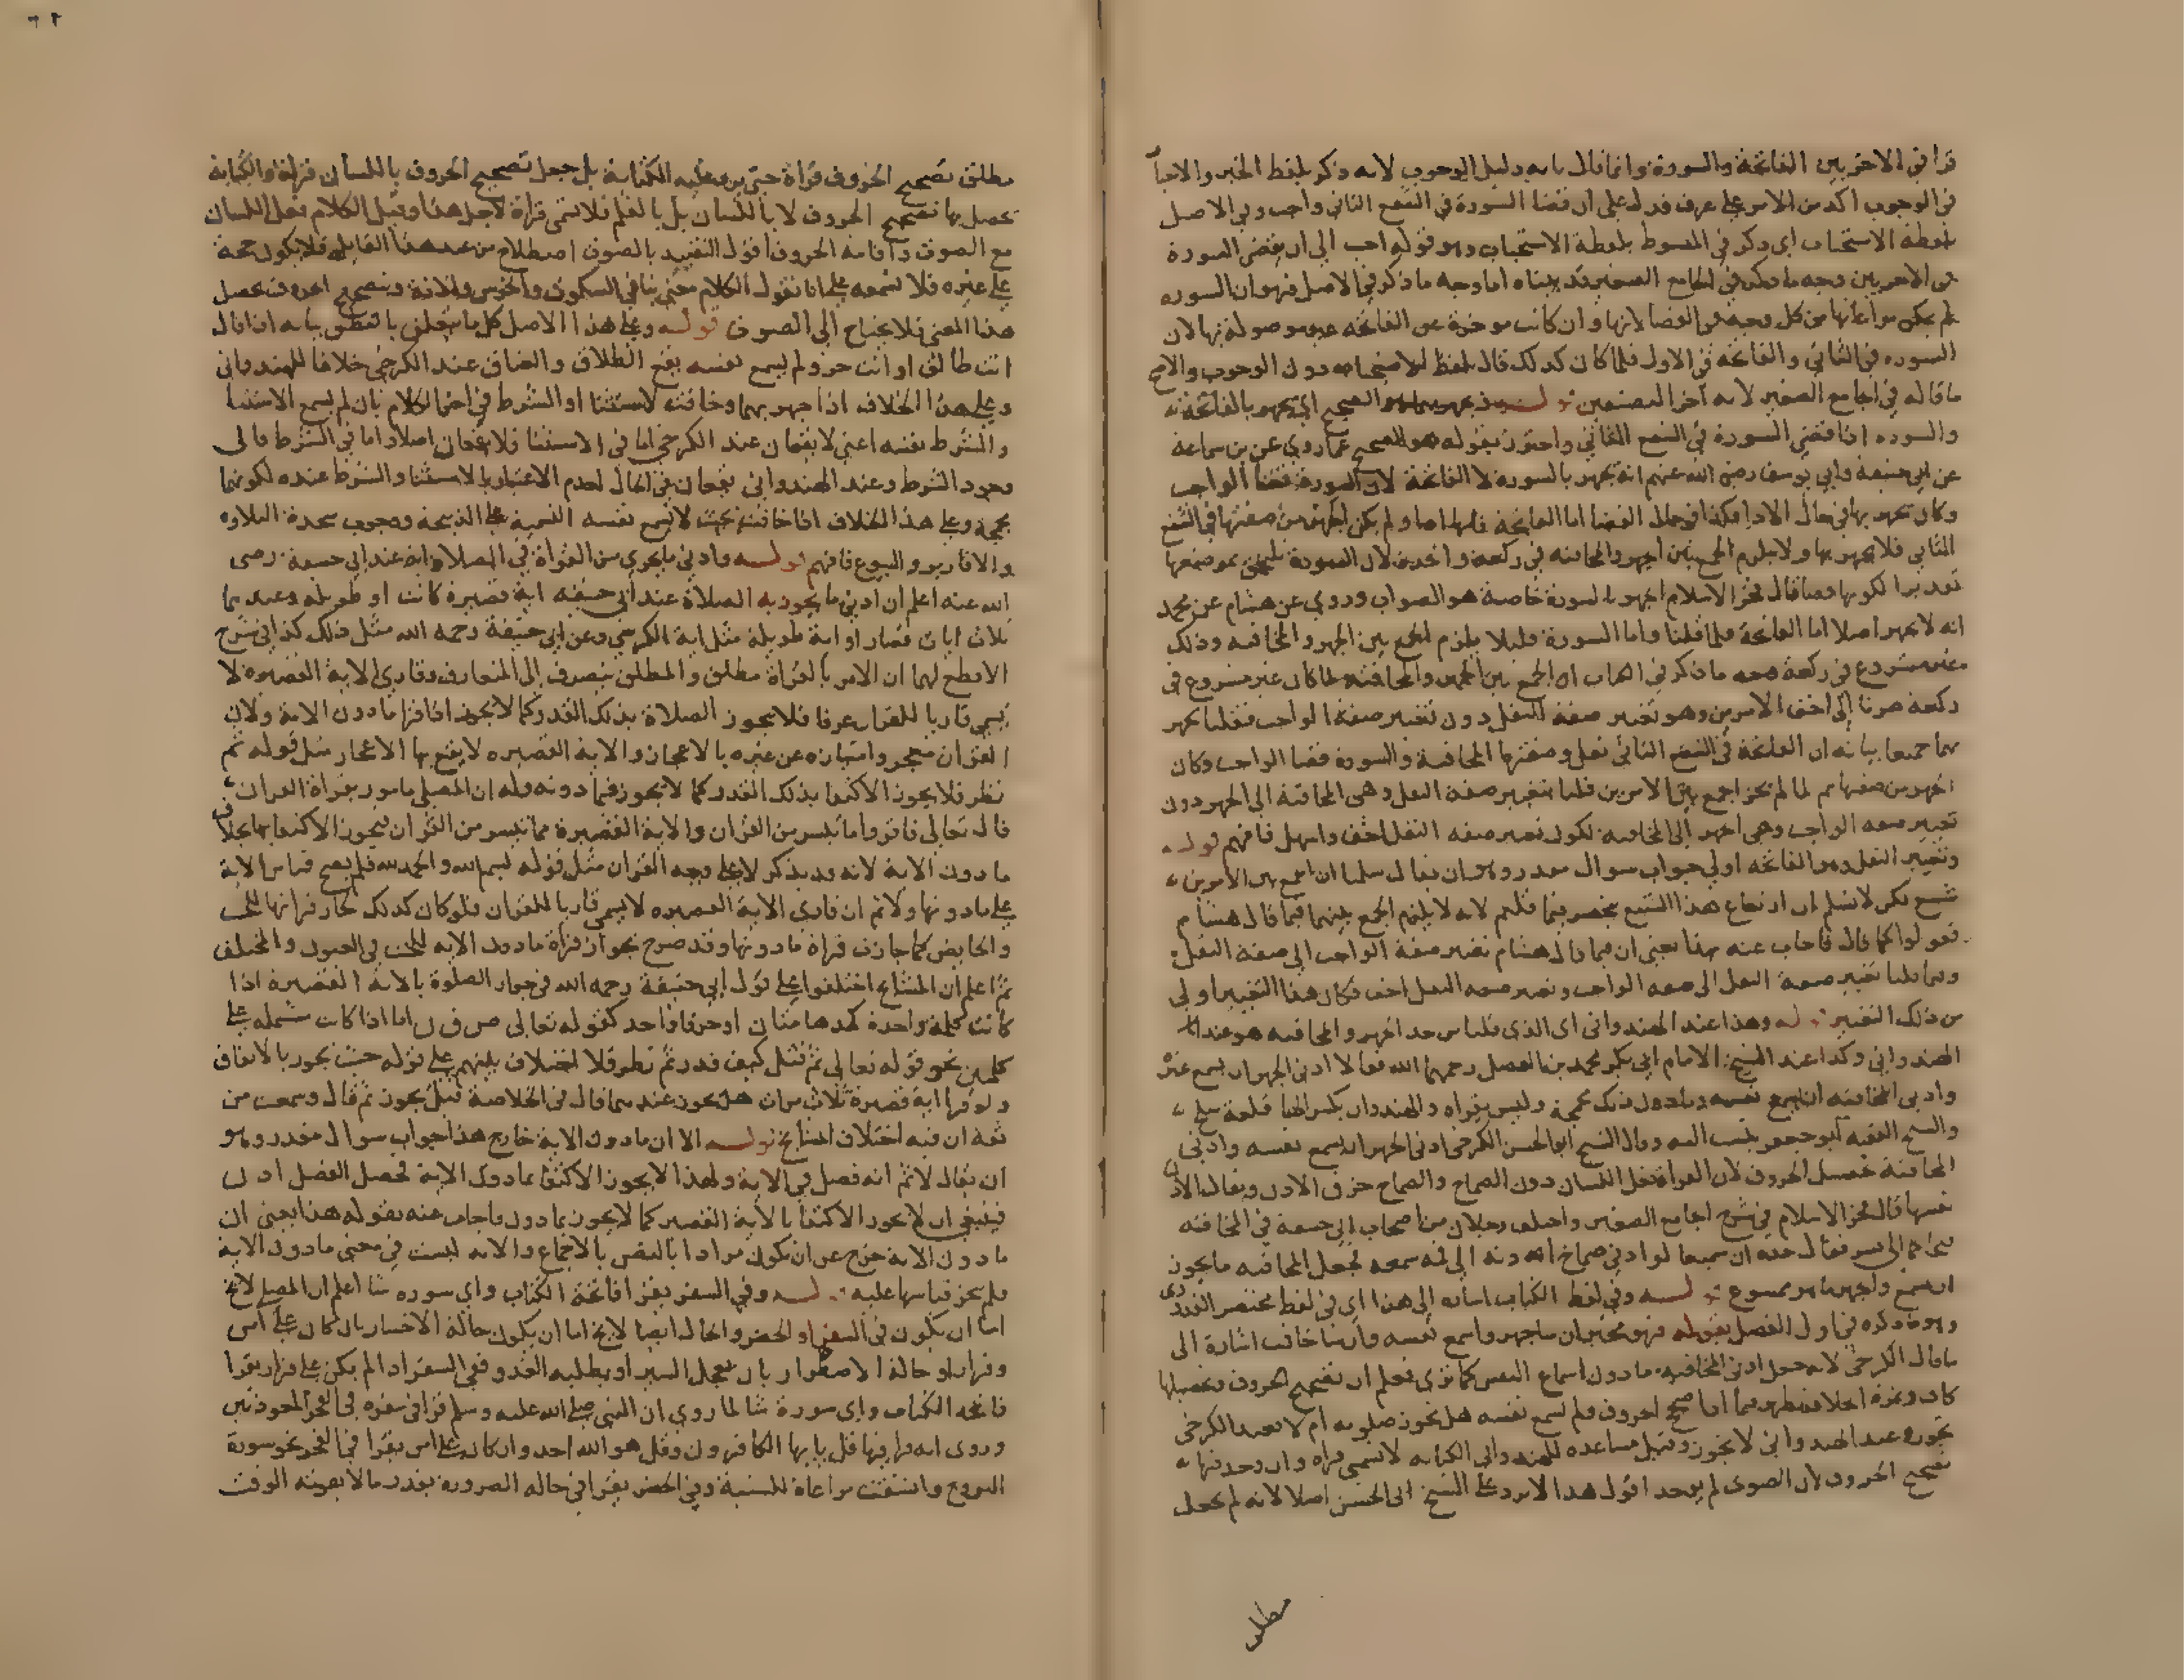 قرا في الاخريين الفاتحة والسورة وانما قال بانه دليل الوجوب لانه ذكر بلفظ الخبر والاخبار
في الوجوب اكد من الامر على عرف فدل على ان قضا السورة في الشفع الثاني واجب وفي الاصل
بلفظة الاستحباب اي ذكر في المبسوط بلفظة الاستحباب وهو قوله احب الي ان يقضي السورة
في الاخريين وجه ما ذكر في الجامع الصغير قد بيناه اما وجه ما ذكر في الاصل فهو ان السورة
لم يمكن مراعاتها من كل وجه في القضا لانها وان كانت موخرة عن الفاتحة غير موصولة بها لان
السورة في الثاني والفاتحة في الاول فلما كان كذلك قال بلفظ الاستحباب دون الوجوب والاصح
ما قاله في الجامع الصغير لانه آخر المصنفين قوله ويجهر بهما هو الصحيح اي يجهر بالفاتحة
والسورة اذا قضى السورة في الشفع الثاني واحترز بقوله هو الصحيح عما روي عن بن سماعة
عن ابي حنيفة وابي يوسف رضي الله عنهم انه يجهر بالسورة لا الفاتحة لان السورة قضا الواجب
وكان يجهر بها في حال الادا فكذا في حال القضا اما الفاتحة فلا ولم يكن الجهر من صفتها في الشفع
الثاني فلا يجهر بها ولا يلزم الجمع بين الجهر والمخافتة في ركعة واحدة لان السورة تلتحق بموضعها
تقديرا لكونها قضا قال فخر الاسلام الجهر بالسورة خاصة هو الصواب وروي عن هشام عن محمد
انه لا يجهر اصلا اما الفاتحة فلما قلنا واما السورة فلئلا يلزم الجمع بين الجهر والمخافتة وذلك
غير مشروع في ركعة وجه ما ذكر في الكتاب ان الجمع بين الجهر والمخافتة لما كان غير مشروع في
ركعة صرنا الى اخف الامرين وهو تغيير صفة النفل دون تغيير صفة الواجب فقلنا يجهر
بهما جميعا بيانه ان الفاتحة في الشفع الثاني نفل وصفتها المخافتة والسورة قضا الواجب وكان
الجهر من صفتها ثم لما لم يجز الجمع بين الامرين قلنا بتغيير صفة النفل وهي المخافتة الى الجهر دون
تغيير صفة الواجب وهي الجهر الى المخافتة لكون تغيير صفة النفل اخف واسهل فافهم قوله
وتغيير النفل وهو الفاتحة اولى جواب سوال مقدر وهو ان يقال سلمنا ان الجمع بين الامرين
شنيع لكن لا نسلم ان ارتفاع هذا الشنيع ينحصر فيما قلتم لانه لا يلزم الجمع بينهما فيما قال هشام
فقولوا كما قال فاجاب عنه بهذا يعني ان فيما قال هشام تغيير صفة الواجب الى صفة النفل
وفيما قلنا تغيير صفة النفل الى صفة الواجب وتغيير صفة النفل اخف فكان هذا التغيير اولى
من ذلك التغيير قوله وهذا عند الهندواني اي الذي قلنا من حد الجهر والمخافتة هو عند
الهندواني وكذا عند الشيخ الامام ابي بكر محمد بن الفضل رحمهما الله فقالا ادنى الجهر ان يسمع غيره
وادنى المخافتة ان يسمع نفسه وما دون ذلك مجمجة وليس بقراه والهندوان بكسر الها قلعة بلخ
والشيخ الفقيه ابو جعفر ينسب اليه وقال الشيخ ابو الحسن الكرخي ادنى الجهر ان يسمع نفسه وادنى
المخافتة تحصيل الحروف لان القراة فعل اللسان دون الصماخ والصماخ خرق الاذن ويقال الاذن
نفسها قال فخر الاسلام في شرح الجامع الصغير واختلف رجلان من اصحاب ابي حنيفة في المخافتة
الى بشر فقال حده ان سمعا لو ادنى صماخ اذنه الى فمه سمعه فجعل المخافتة ما يجوز
ان يسمع والجهر ما هو مسموع قوله وفي لفظ الكتاب اشارة الى هذا اي في لفظ مختصر القدوري
وهو ما ذكره في اول الفصل بقوله فهو مخير ان شا جهر واسمع نفسه وان شا خافت اشارة الى
ما قال الكرخي لانه جعل ادنى المخافتة ما دون اسماع النفس كما ترى فعلم ان تصحيح الحروف وتحصيلها
كاف وثمرة الخلاف تظهر فيما اذا صحح الحروف ولم يسمع نفسه هل تجوز صلوته ام لا فعند الكرخي
تجوز وعند الهندواني لا تجوز وقيل مساعده للهندواني الكتابه لا تسمى قراه وان وجد فيها
تصحيح الحروف لان الصوت لم يوجد اقول هذا لا يرد على الشيخ ابي الحسن اصلا لانه لم يجعل
مطلق
مطلق تصحيح الحروف قراة حتى يرد عليه الكتابة بل جعل تصحيح الحروف باللسان قراة والكتابة
تحصل بها تصحيح الحروف لا باللسان بل بالقلم فلا تسمى قراة لاجل هذا وقيل الكلام فعل اللسان
مع الصوت واقامة الحروف اقول التقييد بالصوت اصطلاح من عند هذا القايل فلا يكون حجة
على غيره فلا نسمعه على انا نقول الكلام معنى ينافي السكوت والخرس والافة وبتصحيح الحروف يحصل
هذا المعنى فلا يحتاج الى الصوت قوله وعلى هذا الاصل كل ما يتعلق بالنطق بيانه اذا قال
انت طالق او انت حر ولم يسمع نفسه يقع الطلاق والعتاق عند الكرخي خلافا للهندواني
وعلى هذا الخلاف اذا جهر بهما وخافت الاستثنا او الشرط في اخر الكلام بان لم يسمع الاستثنا
والشرط نفسه اعني لا يقعان عند الكرخي اما في الاستثنا فلا يقعان اصلا واما في الشرط فالى
وجود الشرط وعند الهندواني يقعان في الحال لعدم الاعتبار بالاستثنا والشرط عنده لكونهما
مجمجة وعلى هذا الخلاف اذا خافت بحيث لا يسمع نفسه التسمية على الذبيحة ووجوب سجدة التلاوه
والاقارير والبيوع فافهم قوله وادنى ما يجزي من القراة في الصلاة اية عند ابي حنيفة رضي
الله عنه اعلم ان ادنى ما يجوز به الصلاة عند ابي حنيفه اية قصيرة كانت او طويله وعندهما
ثلاث ايات قصار او اية طويلة مثل اية الكرسي وعن ابي حنيفة رحمه الله مثل ذلك كذا في شرح
الاقطع لهما ان الامر بالقراة مطلق والمطلق ينصرف الى المتعارف وقارئ الاية القصيره لا
يسمى قاريا للقران عرفا فلا يجوز الصلاة بذلك القدر كما لا يجوز اذا قرا ما دون الاية ولان
القران معجز وامتيازه عن غيره بالاعجاز والاية القصيره لا يقع بها الاعجاز مثل قوله ثم
نظر فلا يجوز الاكتفا بذلك القدر كما لا يجوز فيما دونه وله ان المصلي مامور بقراة القران
قال تعالى فاقروا ما تيسر من القران والاية القصيرة مما تيسر من القران فيجوز الاكتفا بها بخلاف
ما دون الاية لانه قد يذكر لا على وجه القران مثل قوله بسم الله والحمد لله فلم يصح قياس الاية
على ما دونها ولا نم ان قارى الاية القصيره لا يسمى قاريا للقران فلو كان كذلك لجاز قراتها للجنب
والحايض كما جازت قراة ما دونها وقد صرح بجواز قراة ما دون الاية للجنب في العيون والمختلف
ثم اعلم ان المشايخ اختلفوا على قول ابي حنيفة رحمه الله في جواز الصلوة بالاية القصيرة اذا
كانت كلمة واحدة كمدهامتان او حرفا واحد كقوله تعالى ص ق ن اما اذا كانت مشتمله على
كلمتين نحو قوله تعالى ثم قتل كيف قدر ثم نظر فلا اختلاف بينهم على قوله حيث يجوز بالاتفاق
ولو قرا اية قصيرة ثلاث مرات هل يجوز عندهما قال في الخلاصة قيل يجوز ثم قال وسمعت من
ثقة ان فيه اختلاف المشايخ قوله الا ان ما دون الاية خارج هذا جواب سوال مقدر وهو
ان يقال لا نم انه فصل في الاية ولهذا لا يجوز الاكتفا بما دون الاية فحصل الفصل اذن
فينبغي ان لا يجوز الاكتفا بالاية القصير كما لا يجوز بما دون فاجاب عنه بقوله هذا يعني ان
ما دون الاية خرج عن ان يكون مرادا بالنص بالاجماع والاية ليست في معنى ما دون الاية
فلم يجز قياسها عليه قوله وفي السفر يقرا فاتحة الكتاب واي سوره شا اعلم ان المصلي لا يخ
اما ان يكون في السفر او الحضر والحال ايضا لا يخ اما ان يكون حالة الاختيار بان كان على امن
وقرار او حالة الاضطرار بان يعجل السير او يطلبه العدو ففي السفر اذا لم يكن على قرار يقرا
فاتحه الكتاب واي سورة شا لما روي ان النبي صلى الله عليه وسلم قرا في سفره في الفجر المعوذتين
وروى انه قرا فيها قل يا ايها الكافرون وقل هو الله احد وان كان على امن يقرا في الفجر نحو سورة
البروج وانشقت مراعاة للسنة وفي الحضر يقرا في حاله الضرورة بقدر ما لا يفوته الوقت